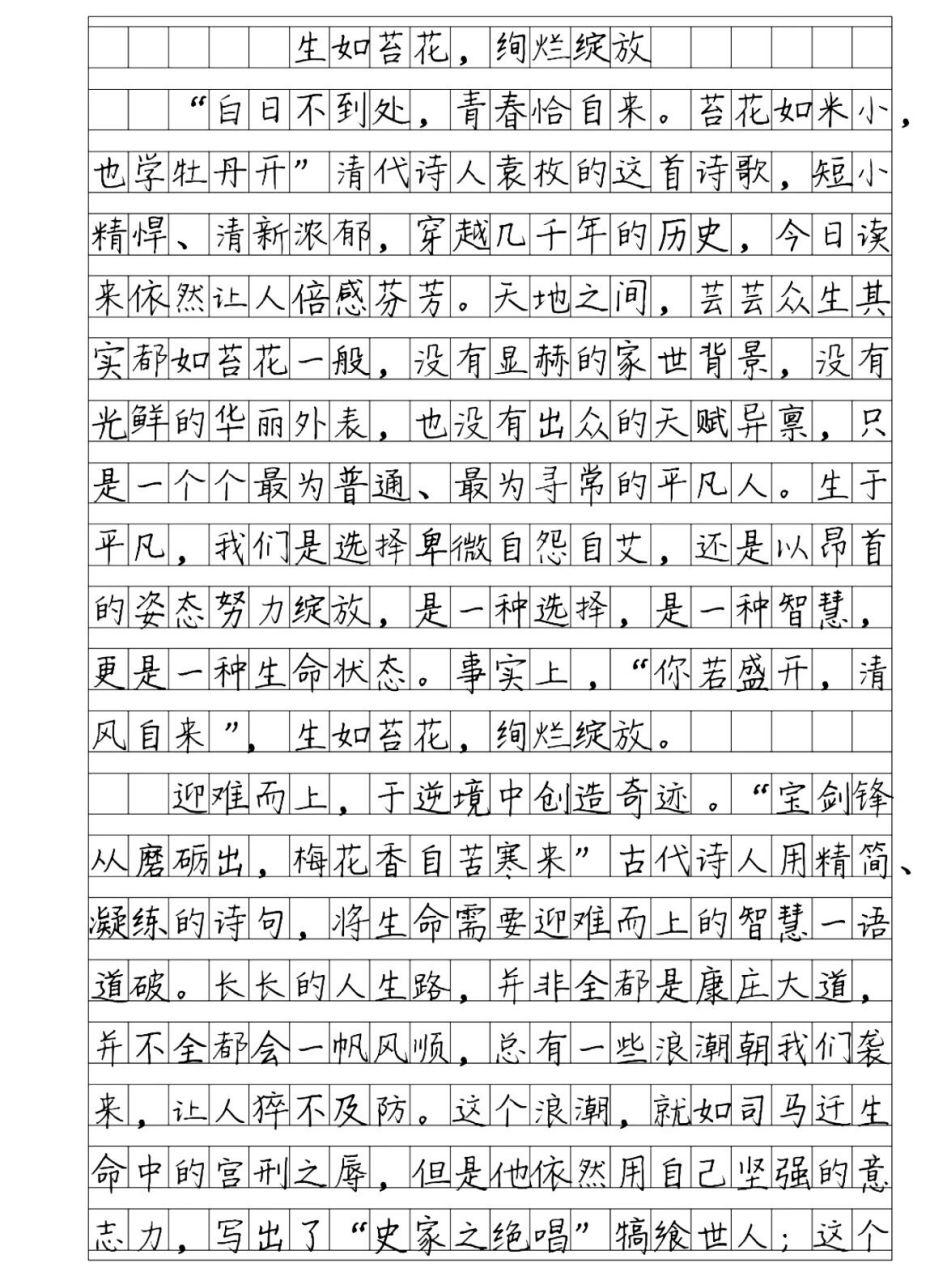 生如苔花，绚烂绽放
“白日不到处，青春恰自来。苔花如米小，
也学牡丹开”清代诗人袁枚的这首诗歌，短小
精悍、清新浓郁，穿越几千年的历史，今日读
来依然让人倍感芬芳。天地之间，芸芸众生其
实都如苔花一般，没有显赫的家世背景，没有
光鲜的华丽外表，也没有出众的天赋异禀，只
是一个个最为普通、最为寻常的平凡人。生于
平凡，我们是选择卑微自怨自艾，还是以昂首
的姿态努力绽放，是一种选择，是一种智慧，
更是一种生命状态。事实上，“你若盛开，清
风自来”，生如苔花，绚烂绽放。
迎难而上，于逆境中创造奇迹。“宝剑锋
从磨砺出，梅花香自苦寒来”古代诗人用精简、
凝练的诗句，将生命需要迎难而上的智慧一语
道破。长长的人生路，并非全都是康庄大道，
并不全都会一帆风顺，总有一些浪潮朝我们袭
来，让人猝不及防。这个浪潮，就如司马迁生
命中的宫刑之辱，但是他依然用自己坚强的意
志力，写出了“史家之绝唱”犒飨世人；这个